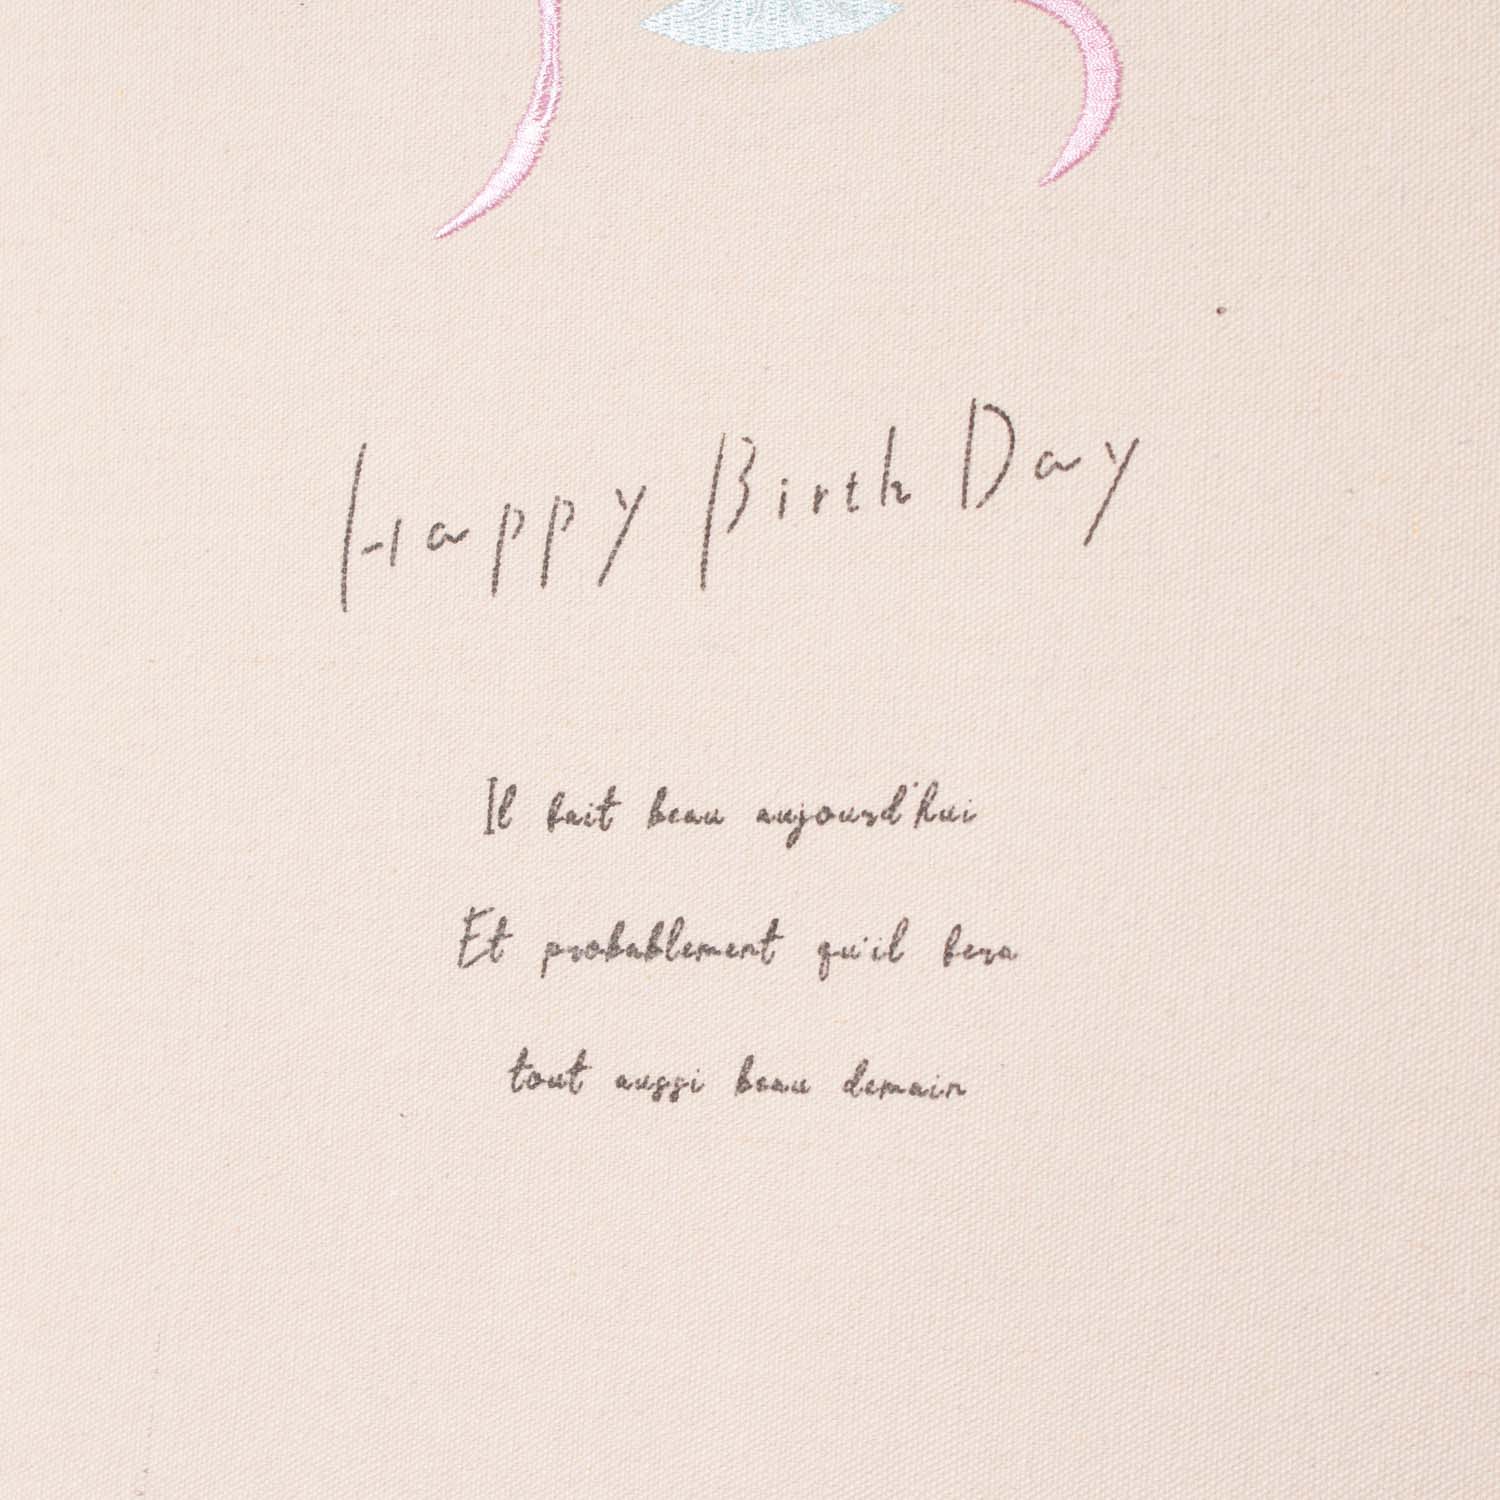 Happy Birth Day
Il fait beau aujourd'hui
Et probablement qu'il fera
tout aussi beau demain